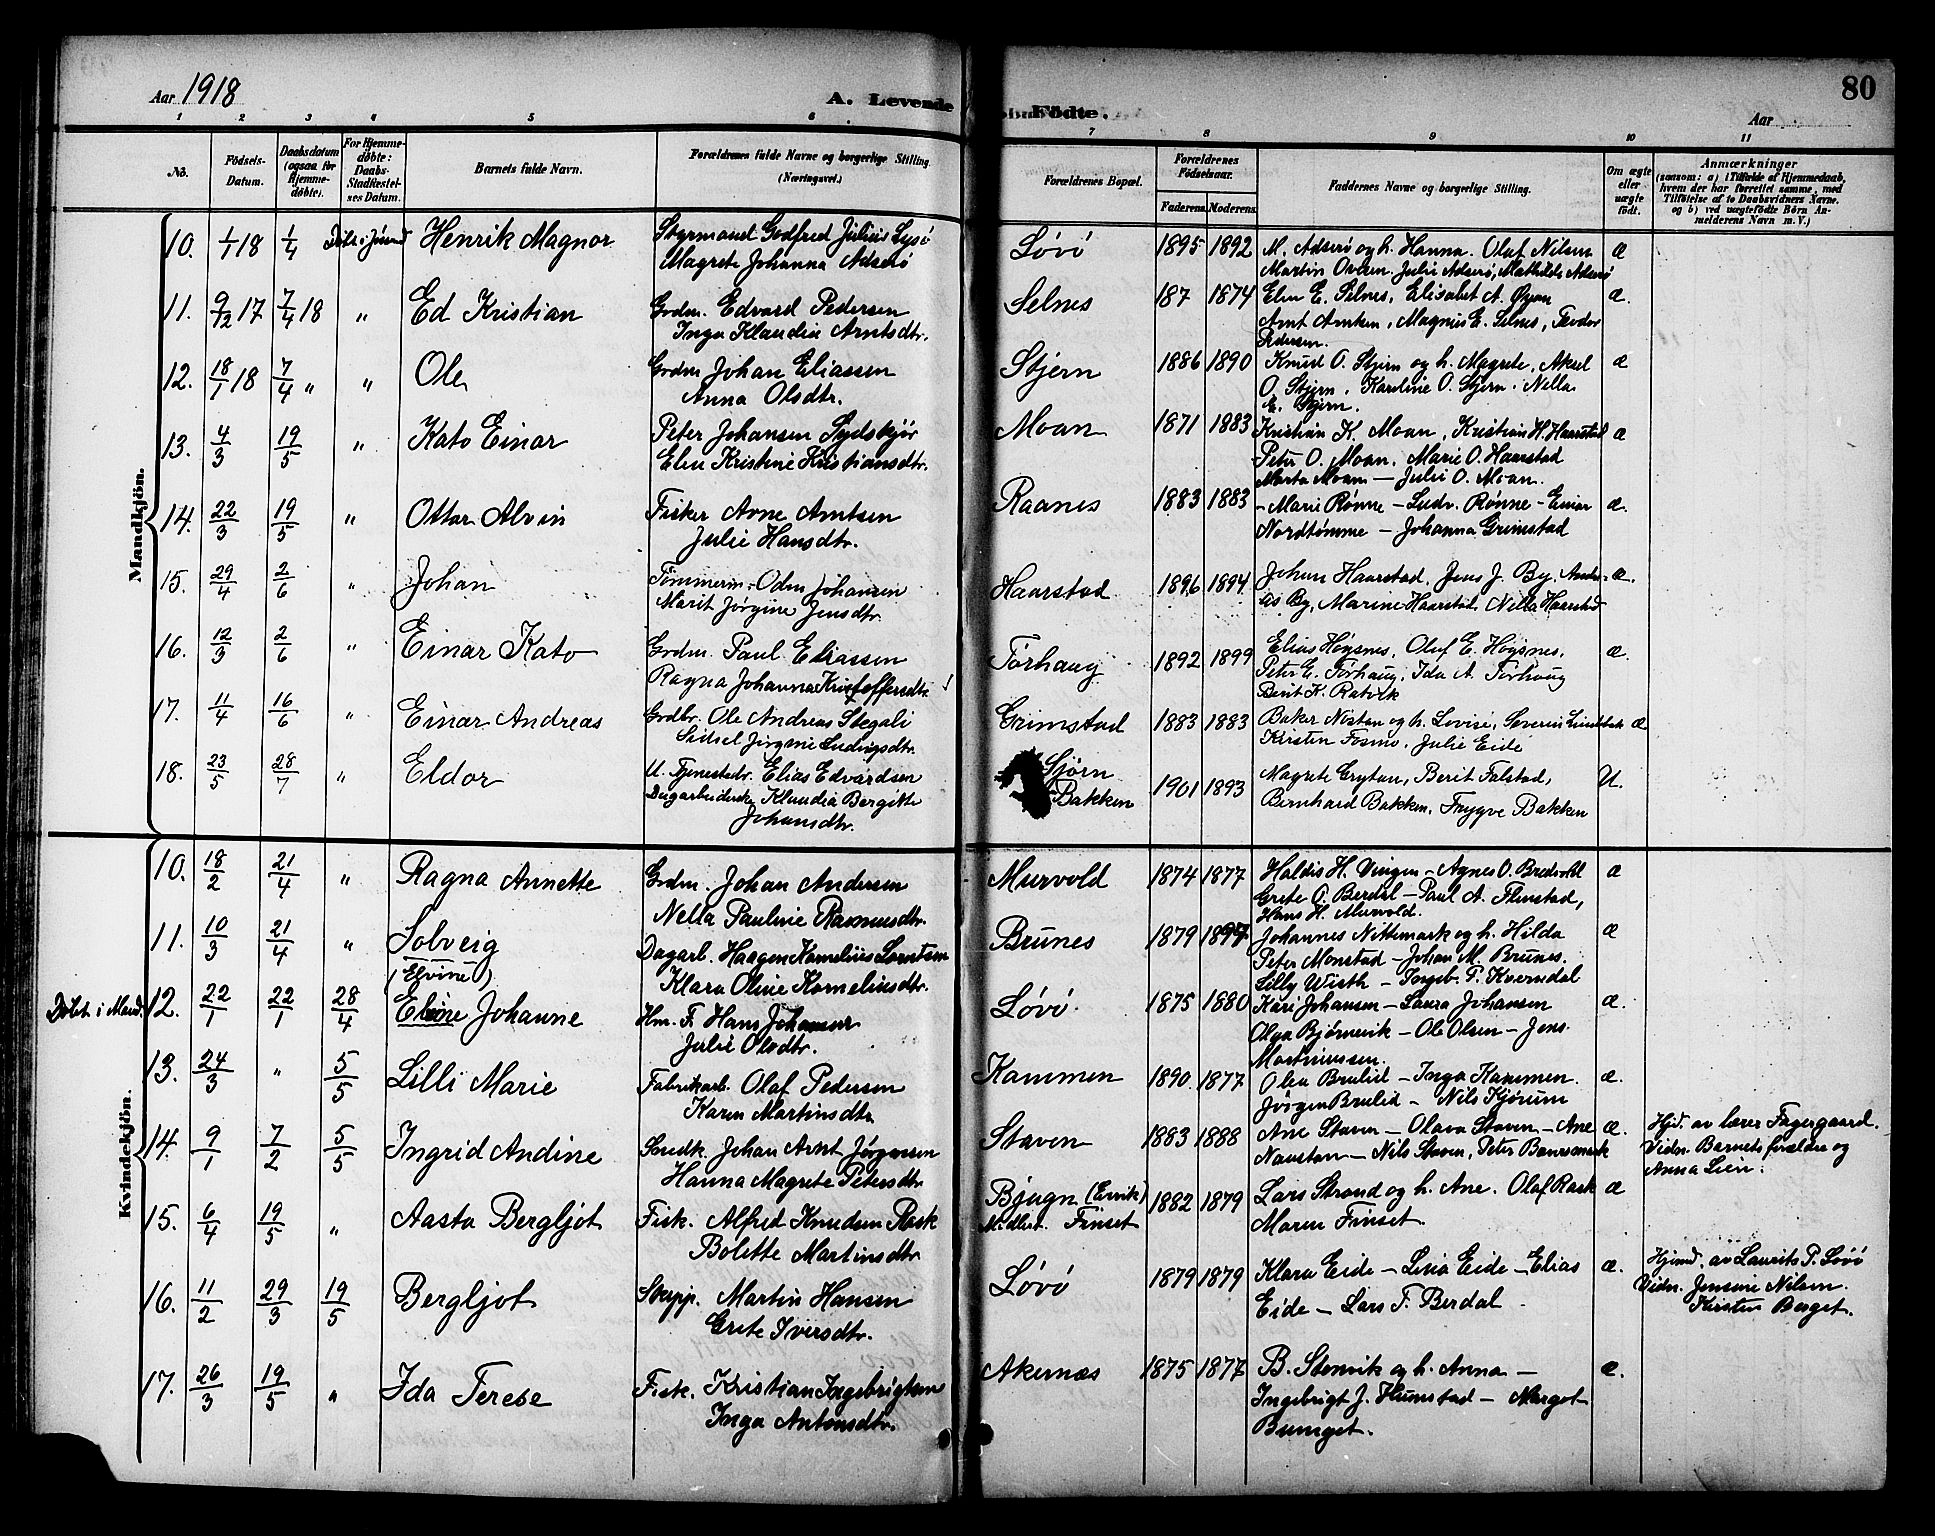 Aar 1918
A. Levende
Födte.
80
Aar
1 2 3 4 5 6 7 8 9 10 11
No.
Födsels-Datum.
Daabsdatum (ogsaa for Hjemmedøbte).
For Hjemmedøbte: Daabs-Stadfæstelses Datum.
Barnets fulde Navn.
Forældrenes fulde Navne og borgerlige Stilling. (Næringsvei.)
Forældrenes Bopæl.
Forældrenes Födselsaar.
Faderens. Moderens.
Faddernes Navne og borgerlige Stilling.
Om ægte eller uægte födt.
Anmærkninger
(saasom: a) i Tilfælde af Hjemmedaab, hvem der har forrettet samme, med Tilföielse af to Daabsvidners Navne. og b) ved uægtefödte Börn Anmelderens Navn m. V.)
Mandkjön.
10. 1/1 18 1/4 Henrik Magnor Styrmand Godfred Julius Lysö Løvö 1895 1892 M. Adserö og h. Hanna. Olaf Nilsen æ
Magrete Johanna Adserö Martin Ovesen. Julie Adserö, Mathilde Adserö
11. 9/12 17 7/4 18 " Ed Kristian Grdm. Edvard Pedersen Selnes 187 1874 Elen E. Selnes, Elisabet A. Øyan æ.
Inga Klaudia Arntsdtr. Arnt Arntsen, Magnus E. Selnes, Teodor
Pedersen.
12. 18/1 18 7/4 " " Ole Grdm Johan Eliassen Stjern 1886 1890 Knut O. Stjern og h. Magrete, Aksel æ
Anna Olsdtr. O. Stjern, Karoline O. Stjern. Nella
E. Stjern.
13. 4/3 19/5 " Kato Einar Peter Johansen Sydskjör Moan 1871 1883 Kristian K. Moan, Kristian H. Haarstad æ
Elen Kristine Kristiansdtr. Peter O. Moan. Marie O. Haarstad
Marta Moan — Julie O. Moan.
14. 22/3 19/5 " Ottar Alvin Fisker Arne Arntsen Raanes 1883 1883 - Marie Rønne - Ludv. Rønne - Einar æ.
Julie Hansdtr. Nordtømme - Johanna Grimstad
15. 29/4 2/6 " Johan Tömmerm. Odin Johansen Haarstad 1896 1894 Johan Haarstad, Jens J. By, Andre- æ.
Marit Jørgine Jensdtr. as By, Marine Haarstad, Nella Haarstad
16. 12/3 2/6 " Einar Kato Grdm. Paul Eliassen Torhaug 1892 1899 Elias Høgsnes, Oluf E. Høgsnes, æ.
Ragna Johanna Kristoffersdtr. Peter E. Torhaug, Ida A. Torhaug
Berit K. Ratvik
17. 11/4 16/6 " Einar Andreas Grdbr. Ole Andreas Stegali Grimstad 1883 1883 Baker Nöstan og h. Lovise, Severin æ
Sidsel Jörgine Ludvigsdtr. Kirsten Fosmo, Julie Eide
18. 23/5 28/7 " Eldor U. Tjenestedr. Elias Edvardsen Sjørn 1901 1893 Magrete Grytan, Berit Falstad, U.
Klaudia Bergitte Bakken Bernhard Bakken, Trygve Bakken
Johansdtr.
Kvindekjön.
10. 18/2 21/4 " Ragna Annette Grdm. Johan Andersen Murvold 1874 1877 Haldis H. Vingen - Agnes O. Bredvold æ
Nella Pauline Rasmusdtr. Grete O. Berdal - Paul A. Flenstad,
Hans H. Murvold.
11. 10/3 21/4 " Solveig Dagarb. Haagen Kornelius Lorntsen Brunes 1879 1897 Johannes Nittemark og h. Hilda æ
Klara Oline Korneliusdtr. Peter Monstad - Johan M. Brunes.
Lilly Wisth - Ingeb. P. Kverndal
(Elvine)
12. 22/1 22/1 28/4 Johanne Hm. F. Hans Johansen Løvö. 1875 1880 Kari Johansen - Laura Johansen æ.
Julie Olsdtr. Olga Bjørnevik - Ole Olsen - Jens
Martinussen.
13. 24/3 " 5/5 Lilli Marie Fabrikarb. Olaf Pedersen Kammen 1890. 1877 Olea Brulid - Inga Kammen. æ.
Karen Martinsdtr Jørgen Brulid - Nils Kjørum
14. 9/1 7/2 5/5 Ingrid Andine Smedk. Johan Arnt Jørgensen Staven 1883 1888 Ane Staven - Olava Staven - Ane æ. Hjd. av lærer Fagergaard.
Hanna Magrete Petersdtr Naustan - Nils Staven, Peter Vidn. Barnets forældre og
Anna Lien.
15. 6/4 19/5 " Aasta Bergljot Fisk. Alfred Knudsen Rask Bjugn (Ervik) 1882 1879 Lars Strand og h. Ane. Olaf Rask æ
Bolette Martinsdtr Midlert. Finset Maren Finset.
16. 11/2 29/3 19/5 Bergljot Skipp. Martin Hansen Løvö 1879 1879 Klara Eide - Lina Eide - Elias æ. Hjmd. av Laurits P. Løvö
Grete Iversdtr. Eide - Lars T. Berdal. Vidn. Jensine Nilsen
Kirsten Berget.
17. 26/3 19/5 " Ida Terese Fisk. Kristian Ingebrigtsen Akernæs 1875 1877 B. Stenvik og h. Anna - æ.
Inga Antonsdtr. Ingebrigt J. Humstad - Margot